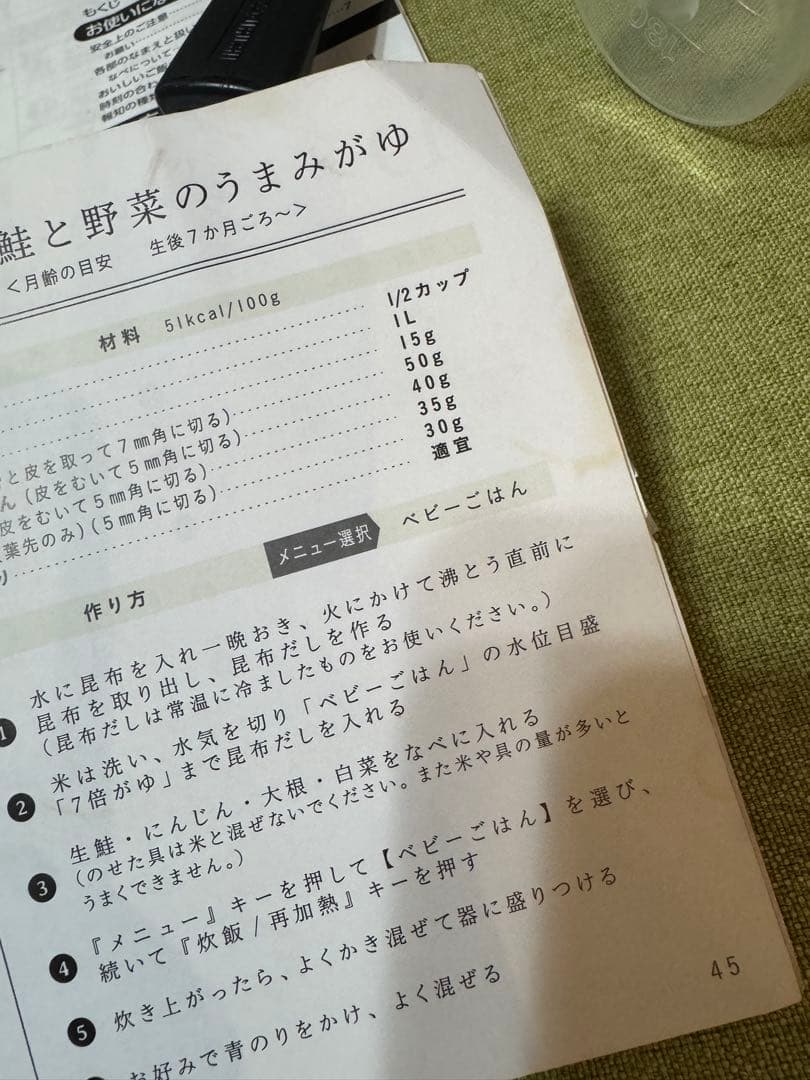 もくじ
お使いにな
安全上のご注意
お願い
各部のなまえと扱い
なべについて
おいしいご飯
時刻の合わ
報知の種類
7
鮭と野菜のうまみがゆ
<月齢の目安 生後7か月ごろ〜>
材料 51kcal/100g
1/2カップ
1L
15g
50g
と皮を取って7㎜角に切る) 40g
ん(皮をむいて5㎜角に切る) 35g
皮をむいて5㎜角に切る) 30g
葉先のみ)(5㎜角に切る) 適宜
り
作り方 メニュー選択 ベビーごはん
1 水に昆布を入れ一晩おき、火にかけて沸とう直前に
昆布を取り出し、昆布だしを作る
(昆布だしは常温に冷ましたものをお使いください。)
2 米は洗い、水気を切り「ベビーごはん」の水位目盛
「7倍がゆ」まで昆布だしを入れる
3 生鮭・にんじん・大根・白菜をなべに入れる
(のせた具は米と混ぜないでください。また米や具の量が多いと
うまくできません。)
4 『メニュー』キーを押して【ベビーごはん】を選び、
続いて『炊飯/再加熱』キーを押す
5 炊き上がったら、よくかき混ぜて器に盛りつける
お好みで青のりをかけ、よく混ぜる
45
180